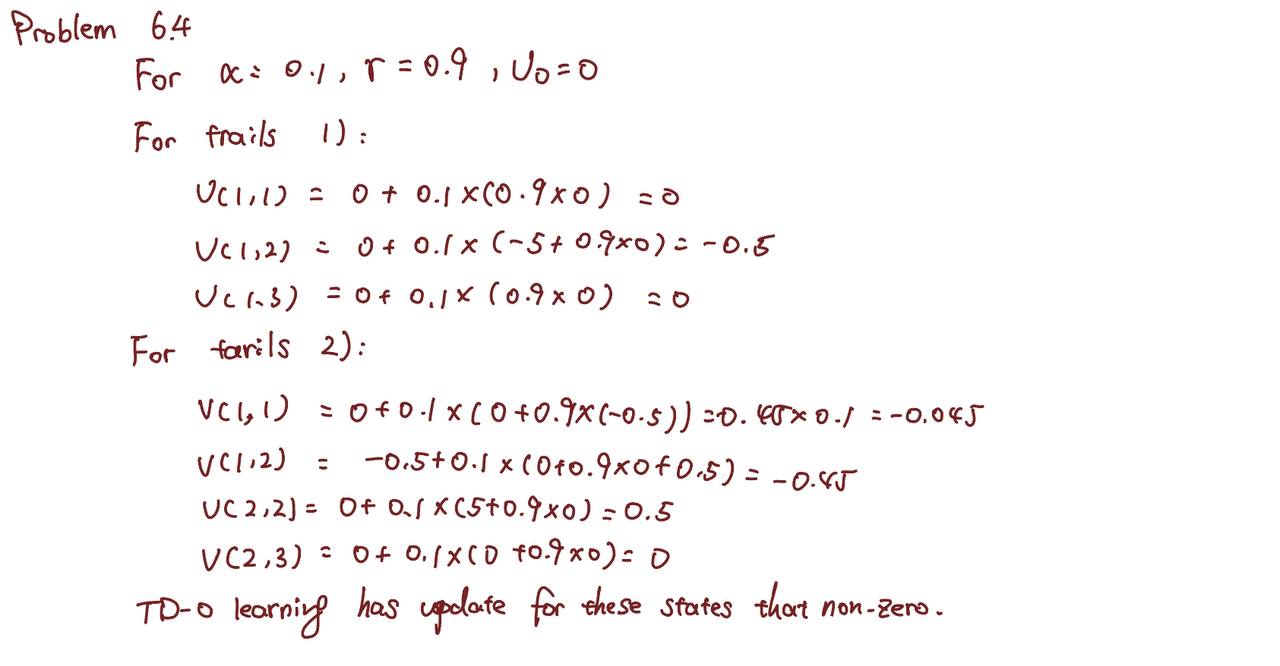 Problem 6.4
For α = 0.1, r = 0.9, U₀ = 0
For trails 1):
U(1,1) = 0 + 0.1 × (0.9 × 0) = 0
U(1,2) = 0 + 0.1 × (-5 + 0.9 × 0) = -0.5
U(1,3) = 0 + 0.1 × (0.9 × 0) = 0
For tarils 2):
V(1,1) = 0 + 0.1 × (0 + 0.9 × (-0.5)) = 0.45 × 0.1 = -0.045
V(1,2) = -0.5 + 0.1 × (0 + 0.9 × 0 + 0.5) = -0.45
U(2,2) = 0 + 0.1 × (5 + 0.9 × 0) = 0.5
V(2,3) = 0 + 0.1 × (0 + 0.9 × 0) = 0
TD-0 learning has update for these states that non-zero.